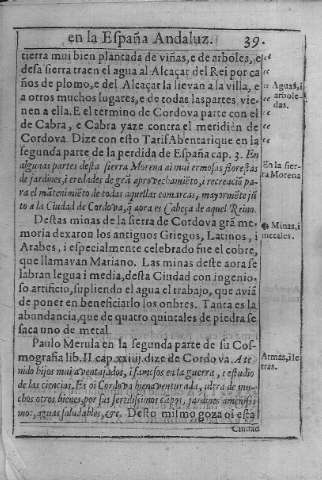 en la España Andaluz. 39.
tierra mui bien plantada de viñas, e de arboles, e
desa sierra traen el agua al Alcaçar del Rei por ca
ños de plomo, e del Alcaçar la lievan a la villa, e
a otros muchos lugares, e de todas las partes vie-
nen a ella. E el termino de Cordova parte con el
de Cabra, e Cabra yaze contra el meridien de
Cordova. Dize con esto Tarif Abentarique en la
segunda parte de la perdida de España cap. 3. En
algunas partes desta sierra Morena ai mui ermosas florestas
de jardines, i eredades de grā aprovechamiēto, i recreaciō pa-
ra el mātenimiēto de todas aquellas comarcas, mayormēte jū
to a la Ciudad de Cordova, q̄ aora es Cabeça de aquel Reino.
Destas minas de la sierra de Cordova grā me-
moria dexaron los antiguos Griegos, Latinos, i
Arabes, i especialmente celebrado fue el cobre,
que llamavan Mariano. Las minas deste aora se
labran legua i media, desta Ciudad con ingenio-
so artificio, supliendo el agua el trabajo, que aviā
de poner en beneficiarlo los onbres. Tanta es la
abundancia, que de quatro quintales de piedra se
saca uno de metal.
Paulo Merula en la segunda parte de su Cos-
mografia lib. II cap. xxiiij. dize de Cordova. A te
nido hijos mui aventajados, i famosos en la guerra, i estudio
de las ciencias. Es oi Cordova bienaventurada, ultra de mu-
chos otros bienes, por sus fertilissimos canpos, jardines amenissi
mos, aguas saludables, &c. Desto mismo goza oi esta
Ciudad
Aguas, i
arbole-
das.
En la sier-
ra Morena
Minas, i
metales.
Armas, i le
tras.